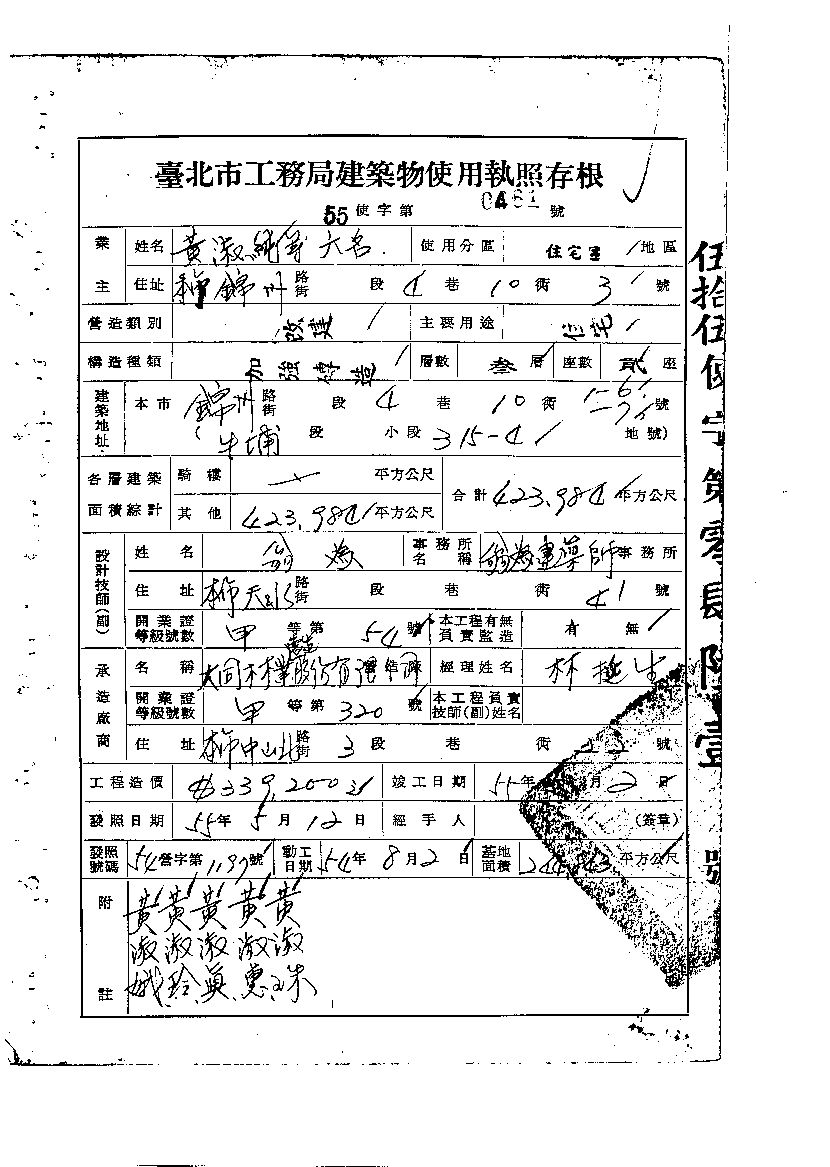 臺北市工務局建築物使用執照存根
55使字第0461號
業主 姓名 黃淑純等六名 使用分區 住宅區 地區
住址 錦州路街 段 4巷 10衖 3號
營造類別 改建 主要用途 住宅
構造種類 加強磚造 層數 叁層 座數 貳座
建築地址 本市 錦州路街 段 4巷 10衖 號
(牛埔段 小段 315-4 地號)
各層建築面積綜計 騎樓 平方公尺 合計 423.98 平方公尺
其他 423.98 平方公尺
設計技師(副) 姓名 翁為 事務所名稱 翁為建築師事務所
住址 路街 段 巷 衖 41號
開業證等級號數 甲等第54號 本工程有無負責監造 有 無
承造廠商 名稱 大同 股份有限公司 經理姓名 林挺生
開業證等級號數 甲等第320號 本工程負責技師(副)姓名
住址 中山北路街 3段 巷 衖 22號
工程造價 竣工日期 55年 月2日
發照日期 55年5月12日 經手人 (簽章)
發照號碼 54營字第1197號 動工日期 54年8月2日 基地面積 平方公尺
附註 黃淑娥 黃淑玲 黃淑真 黃淑惠 黃淑珠
伍拾伍使字第零肆陸壹號